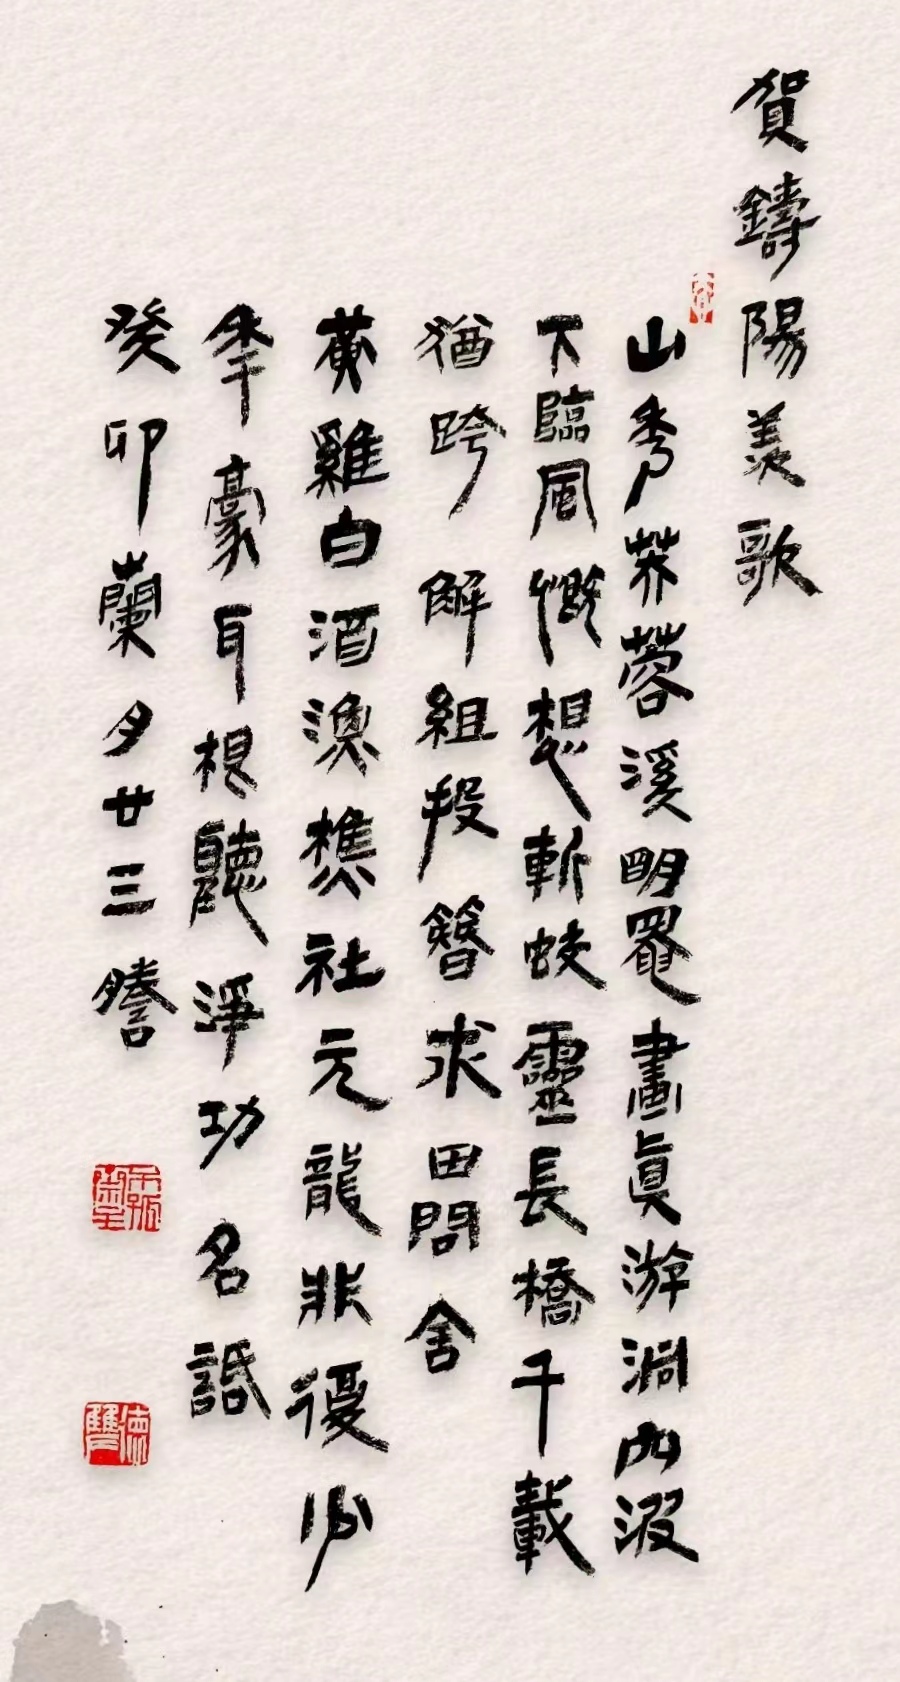 賀鑄陽羨歌
山秀芙蓉溪明罨畫眞游洞穴波
下臨風慨想斬蛟靈長橋千載
猶跨解組投簪求田問舍
黃雞白酒漁樵社元龍非復少
秊豪耳根聽淨功名話
癸卯蘭夕廿三謄